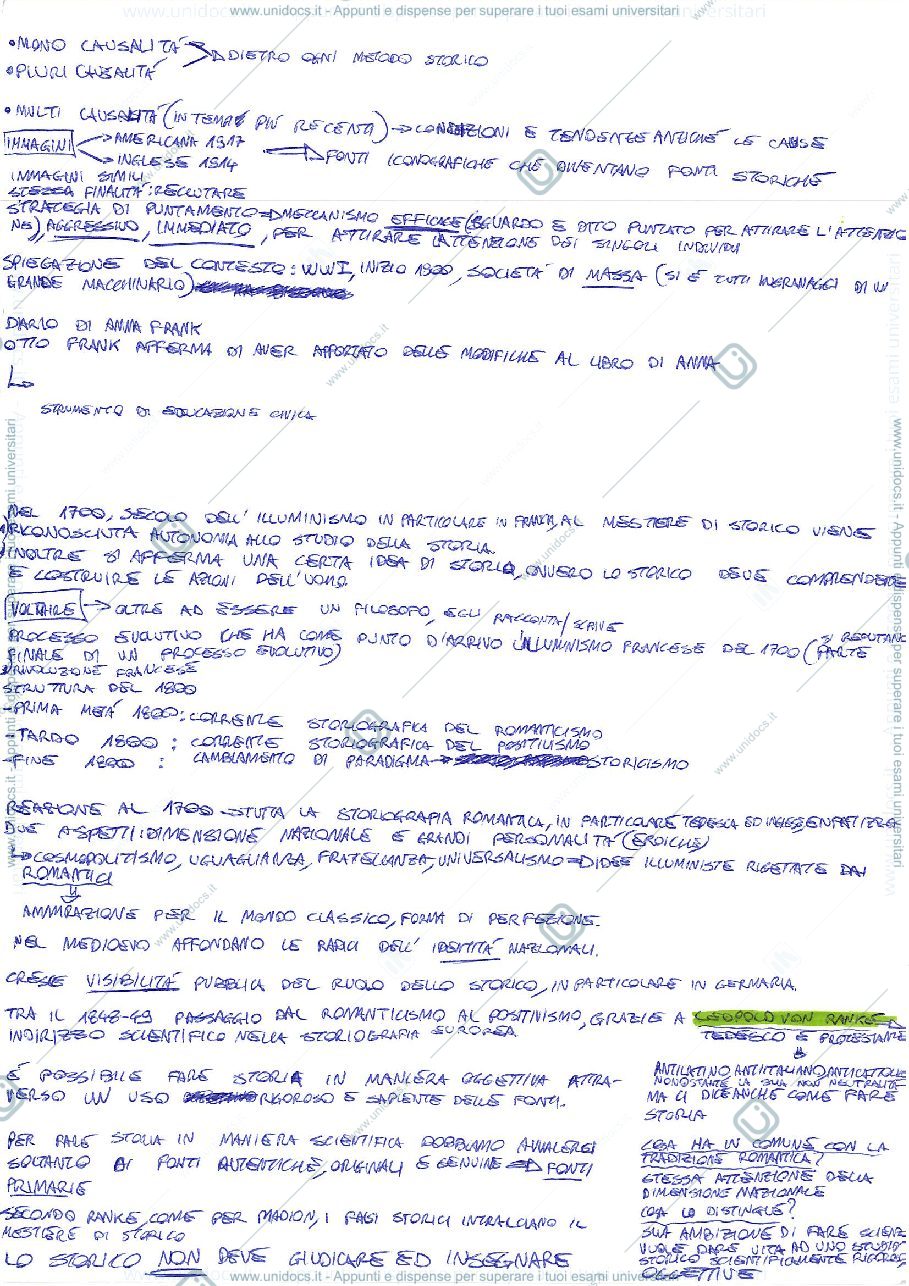 www.unidocs.it - Appunti e dispense per superare i tuoi esami universitari
• MONO CAUSALITÀ
• PLURI CAUSALITÀ
DIETRO OGNI METODO STORICO
• MULTI CAUSALITÀ (IN TEMPI PIÙ RECENTI) → CONDIZIONI E TENDENZE ANTICHE LE CAUSE
IMMAGINI → AMERICANA 1917
→ INGLESE 1914
→ FONTI ICONOGRAFICHE CHE DIVENTANO FONTI STORICHE
IMMAGINI SIMILI
STESSA FINALITÀ: RECLUTARE
STRATEGIA DI PUNTAMENTO → MECCANISMO EFFICACE (SGUARDO E DITO PUNTATO PER ATTIRARE L'ATTENZIO
NE), AGGRESSIVO, IMMEDIATO, PER ATTIRARE L'ATTENZIONE DEI SINGOLI INDIVIDUI
SPIEGAZIONE DEL CONTESTO: WWI, INIZIO 1900, SOCIETÀ DI MASSA (SI È TUTTI INGRANAGGI DI UN
GRANDE MACCHINARIO)
DIARIO DI ANNA FRANK
OTTO FRANK AFFERMA DI AVER APPORTATO DELLE MODIFICHE AL LIBRO DI ANNA
STRUMENTO DI EDUCAZIONE CIVICA
NEL 1700, SECOLO DELL'ILLUMINISMO IN PARTICOLARE IN FRANCIA, AL MESTIERE DI STORICO VIENE
RICONOSCIUTA AUTONOMIA ALLO STUDIO DELLA STORIA.
INOLTRE SI AFFERMA UNA CERTA IDEA DI STORIA, OVVERO LO STORICO DEVE COMPRENDERE
E COSTRUIRE LE AZIONI DELL'UOMO.
VOLTAIRE → OLTRE AD ESSERE UN FILOSOFO, EGLI RACCONTA/SCRIVE
PROCESSO EVOLUTIVO CHE HA COME PUNTO D'ARRIVO L'ILLUMINISMO FRANCESE DEL 1700 (SI REPUTANO PARTE
FINALE DI UN PROCESSO EVOLUTIVO)
RIVOLUZIONE FRANCESE
STRUTTURA DEL 1800
- PRIMA METÀ 1800: CORRENTE STORIOGRAFICA DEL ROMANTICISMO
- TARDO 1800 : CORRENTE STORIOGRAFICA DEL POSITIVISMO
- FINE 1800 : CAMBIAMENTO DI PARADIGMA → STORICISMO
REAZIONE AL 1700 → TUTTA LA STORIOGRAFIA ROMANTICA, IN PARTICOLARE TEDESCA ED INGLESE ENFATIZZA
DUE ASPETTI: DIMENSIONE NAZIONALE E GRANDI PERSONALITÀ (EROICHE)
→ COSMOPOLITISMO, UGUAGLIANZA, FRATELLANZA, UNIVERSALISMO → IDEE ILLUMINISTE RIGETTATE DAI
ROMANTICI
AMMIRAZIONE PER IL MONDO CLASSICO, FORMA DI PERFEZIONE.
NEL MEDIOEVO AFFONDANO LE RADICI DELL'IDENTITÀ NAZIONALI.
CRESCE VISIBILITÀ PUBBLICA DEL RUOLO DELLO STORICO, IN PARTICOLARE IN GERMANIA.
TRA IL 1848-49 PASSAGGIO DAL ROMANTICISMO AL POSITIVISMO, GRAZIE A LEOPOLD VON RANKE →
INDIRIZZO SCIENTIFICO NELLA STORIOGRAFIA EUROPEA.
TEDESCO E PROTESTANTE
ANTILATINO, ANTIITALIANO, ANTICATTOLICO
NONOSTANTE LA SUA NON NEUTRALITÀ
MA CI DICE ANCHE COME FARE
STORIA
È POSSIBILE FARE STORIA IN MANIERA OGGETTIVA ATTRA-
VERSO UN USO RIGOROSO E SAPIENTE DELLE FONTI.
PER FARE STORIA IN MANIERA SCIENTIFICA DOBBIAMO AVVALERCI
SOLTANTO DI FONTI AUTENTICHE, ORIGINALI E GENUINE → FONTI
PRIMARIE
COSA HA IN COMUNE CON LA
TRADIZIONE ROMANTICA?
STESSA ATTENZIONE DELLA
DIMENSIONE NAZIONALE
COSA LO DISTINGUE?
SUA AMBIZIONE DI FARE SCIENZA
VUOLE DARE VITA AD UNO STUDIO
STORICO SCIENTIFICAMENTE RIGOROSO,
OGGETTIVE
SECONDO RANKE, COME PER, I FALSI STORICI INTRALCIANO IL
MESTIERE DI STORICO
LO STORICO NON DEVE GIUDICARE ED INSEGNARE
www.unidocs.it - Appunti e dispense per superare i tuoi esami universitari